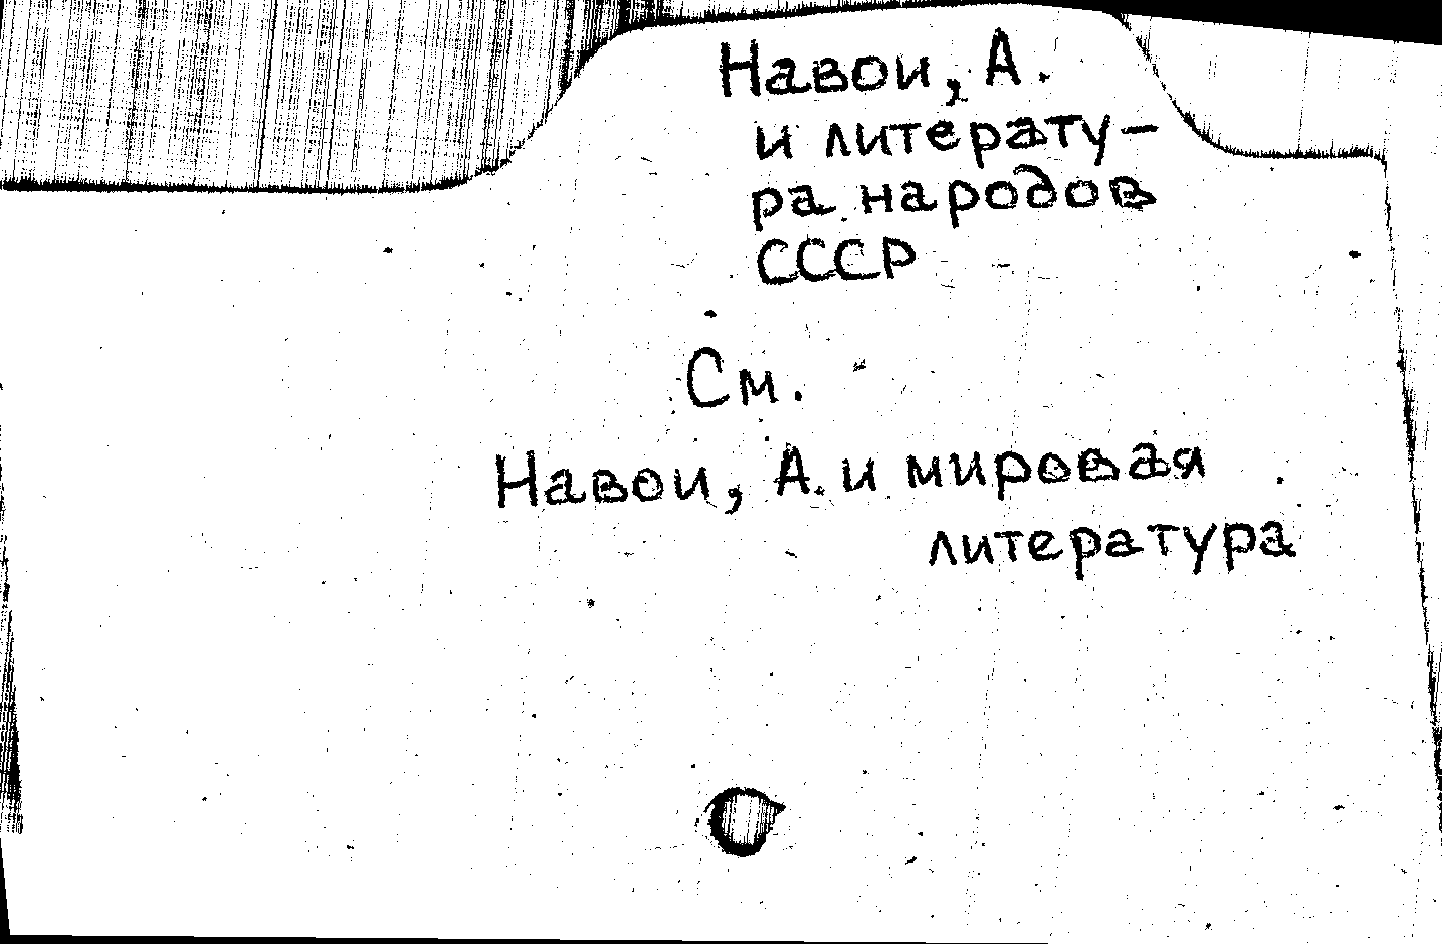 Навои, А.
и литерату-
ра народов
СССР
См.
Навои, А. и мировая
литература